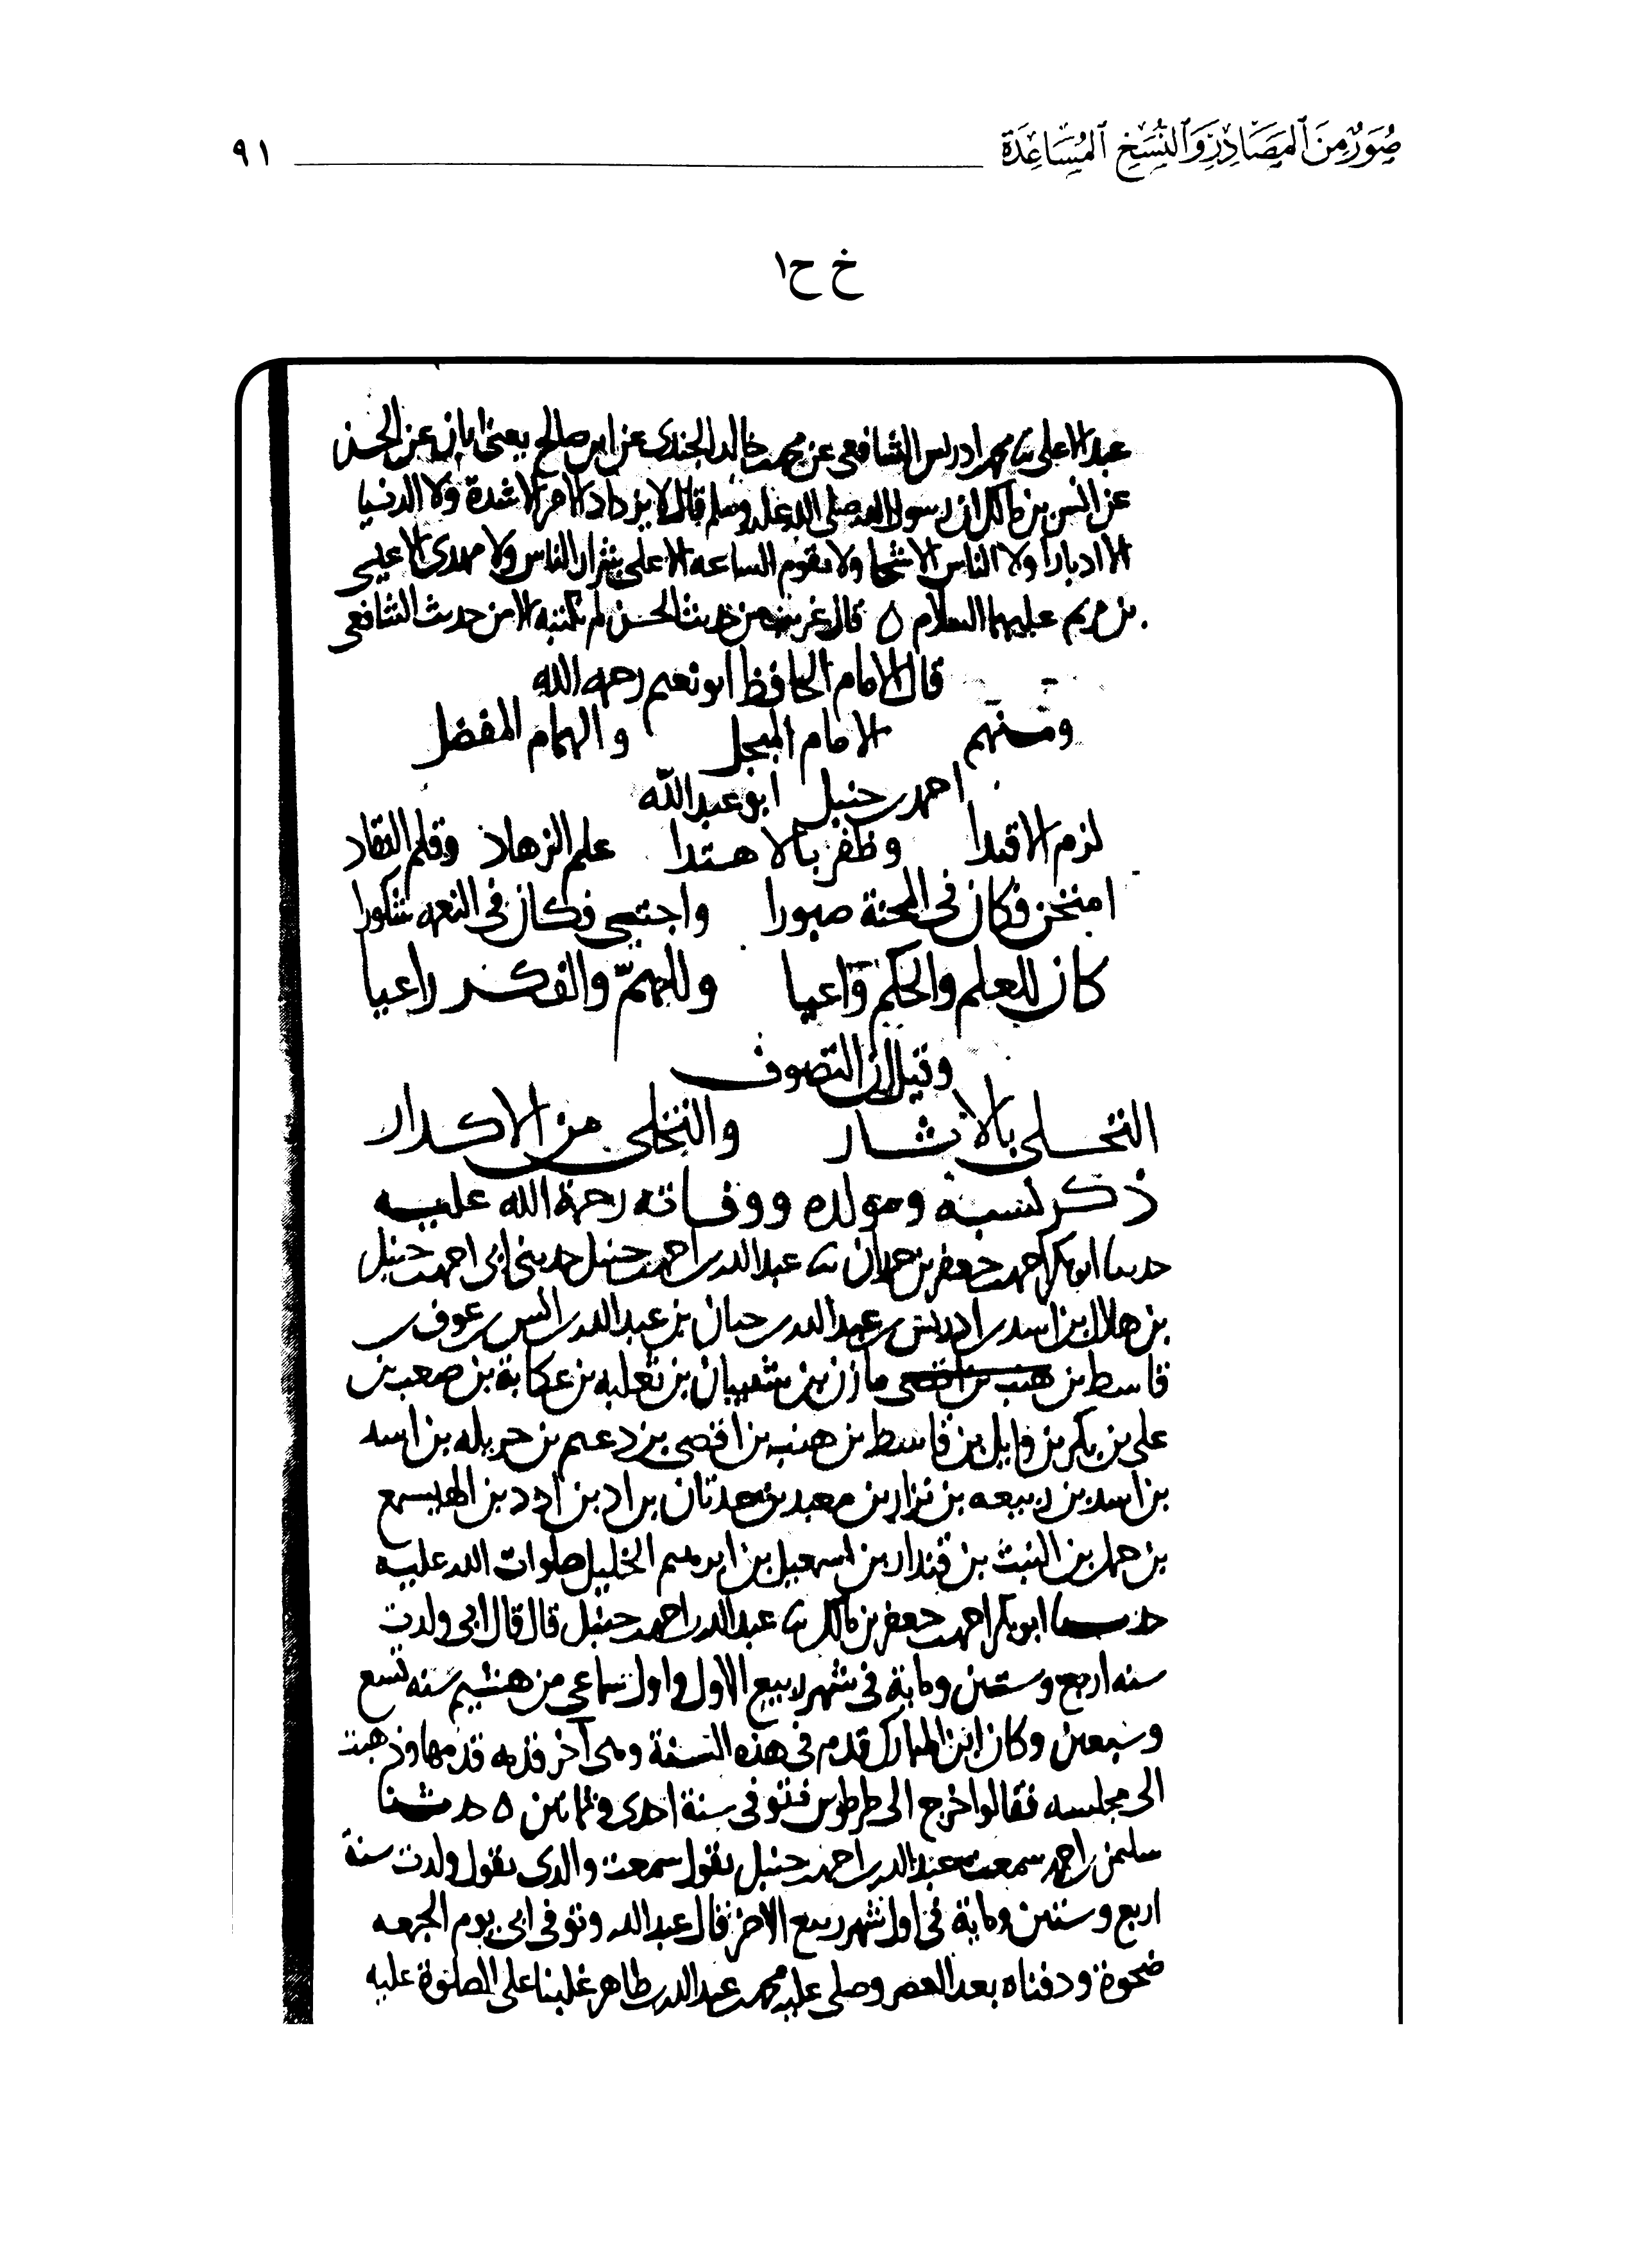 صُوَرٌ مِنَ ٱلمَصَادِرِ وَٱلنُّسَخِ ٱلمُسَاعِدَة
٩١
خ ح١
عبد الاعلى ثنا محمد ادريس الشافعى عن محمد بن خالد الجندى عن ابن صالح يعنى ابان عن الحسن
عن انس بن مالك ان رسول الله صلى الله عليه وسلم قال لا يزداد الامر الا شدة ولا الدنيا
الا ادبارا ولا الناس الا شحا ولا تقوم الساعه الا على شرار الناس ولا مهدى الا عيسى
بن مريم عليهما السلام ٥ قال غريب من حديث الحسن لم نكتبه الا من حديث الشافعى
قال الامام الحافظ ابو نعيم رحمه الله
ومنهم الامام المبجل والهمام المفضل
احمد بن حنبل ابو عبد الله
لزم الاقتدا وظفر بالاهتدا علم الزهاد وقلم النقاد
امتحن فكان فى المحنة صبورا واجتبى فكان فى النعمه شكورا
كان للعلم والحكم واعيا وللهمّ والفكر راعيا
وقيل ان التصوف
التحلى بالاثار والتخلى من الاكدار
ذكر نسبه ومولده ووفاته رحمة الله عليه
حدثنا ابو بكر احمد بن جعفر بن حمدان ثنا عبد الله بن احمد بن حنبل حدثنى ابى احمد بن حنبل
بن هلال بن اسد بن ادريس بن عبد الله بن حيان بن عبد الله بن انس بن عوف بن
قاسط بن مازن بن شيبان بن ثعلبه بن عكابة بن صعب بن
على بن بكر بن وايل بن قاسط بن هنب بن افصى بن دعمى بن جديله بن اسد
بن اسد بن ربيعه بن نزار بن معد بن عدنان بن اد بن ادد بن الهيسع
بن حمل بن النبت بن قيدار بن اسمعيل بن ابرهيم الخليل صلوات الله عليه
حدثنا ابو بكر احمد بن جعفر بن مالك ثنا عبد الله بن احمد بن حنبل قال قال ابى ولدت
سنه اربع وستين وماية فى شهر ربيع الاول واول سماعى من هشيم سنه تسع
وسبعين وكان ابن المبارك قدم فى هذه السنة وهى آخر قدمه قدمها وذهبت
الى مجلسه فقالوا خرج الى طرطوس فتوفى سنة احدى وثمانين ٥ حدثنا
سليمن بن احمد سمعت عبد الله بن احمد بن حنبل يقول سمعت والدى يقول ولدت سنة
اربع وستين وماية فى اول شهر ربيع الاخر قال عبد الله وتوفى ابى يوم الجمعه
ضحوة ودفناه بعد العصر وصلى عليه محمد بن عبد الله بن طاهر غلبنا على الصلوة عليه